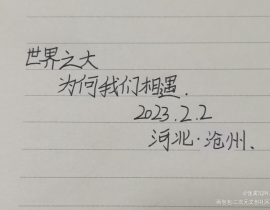 世界之大
为何我们相遇.
2023.2.2
河北·沧州.